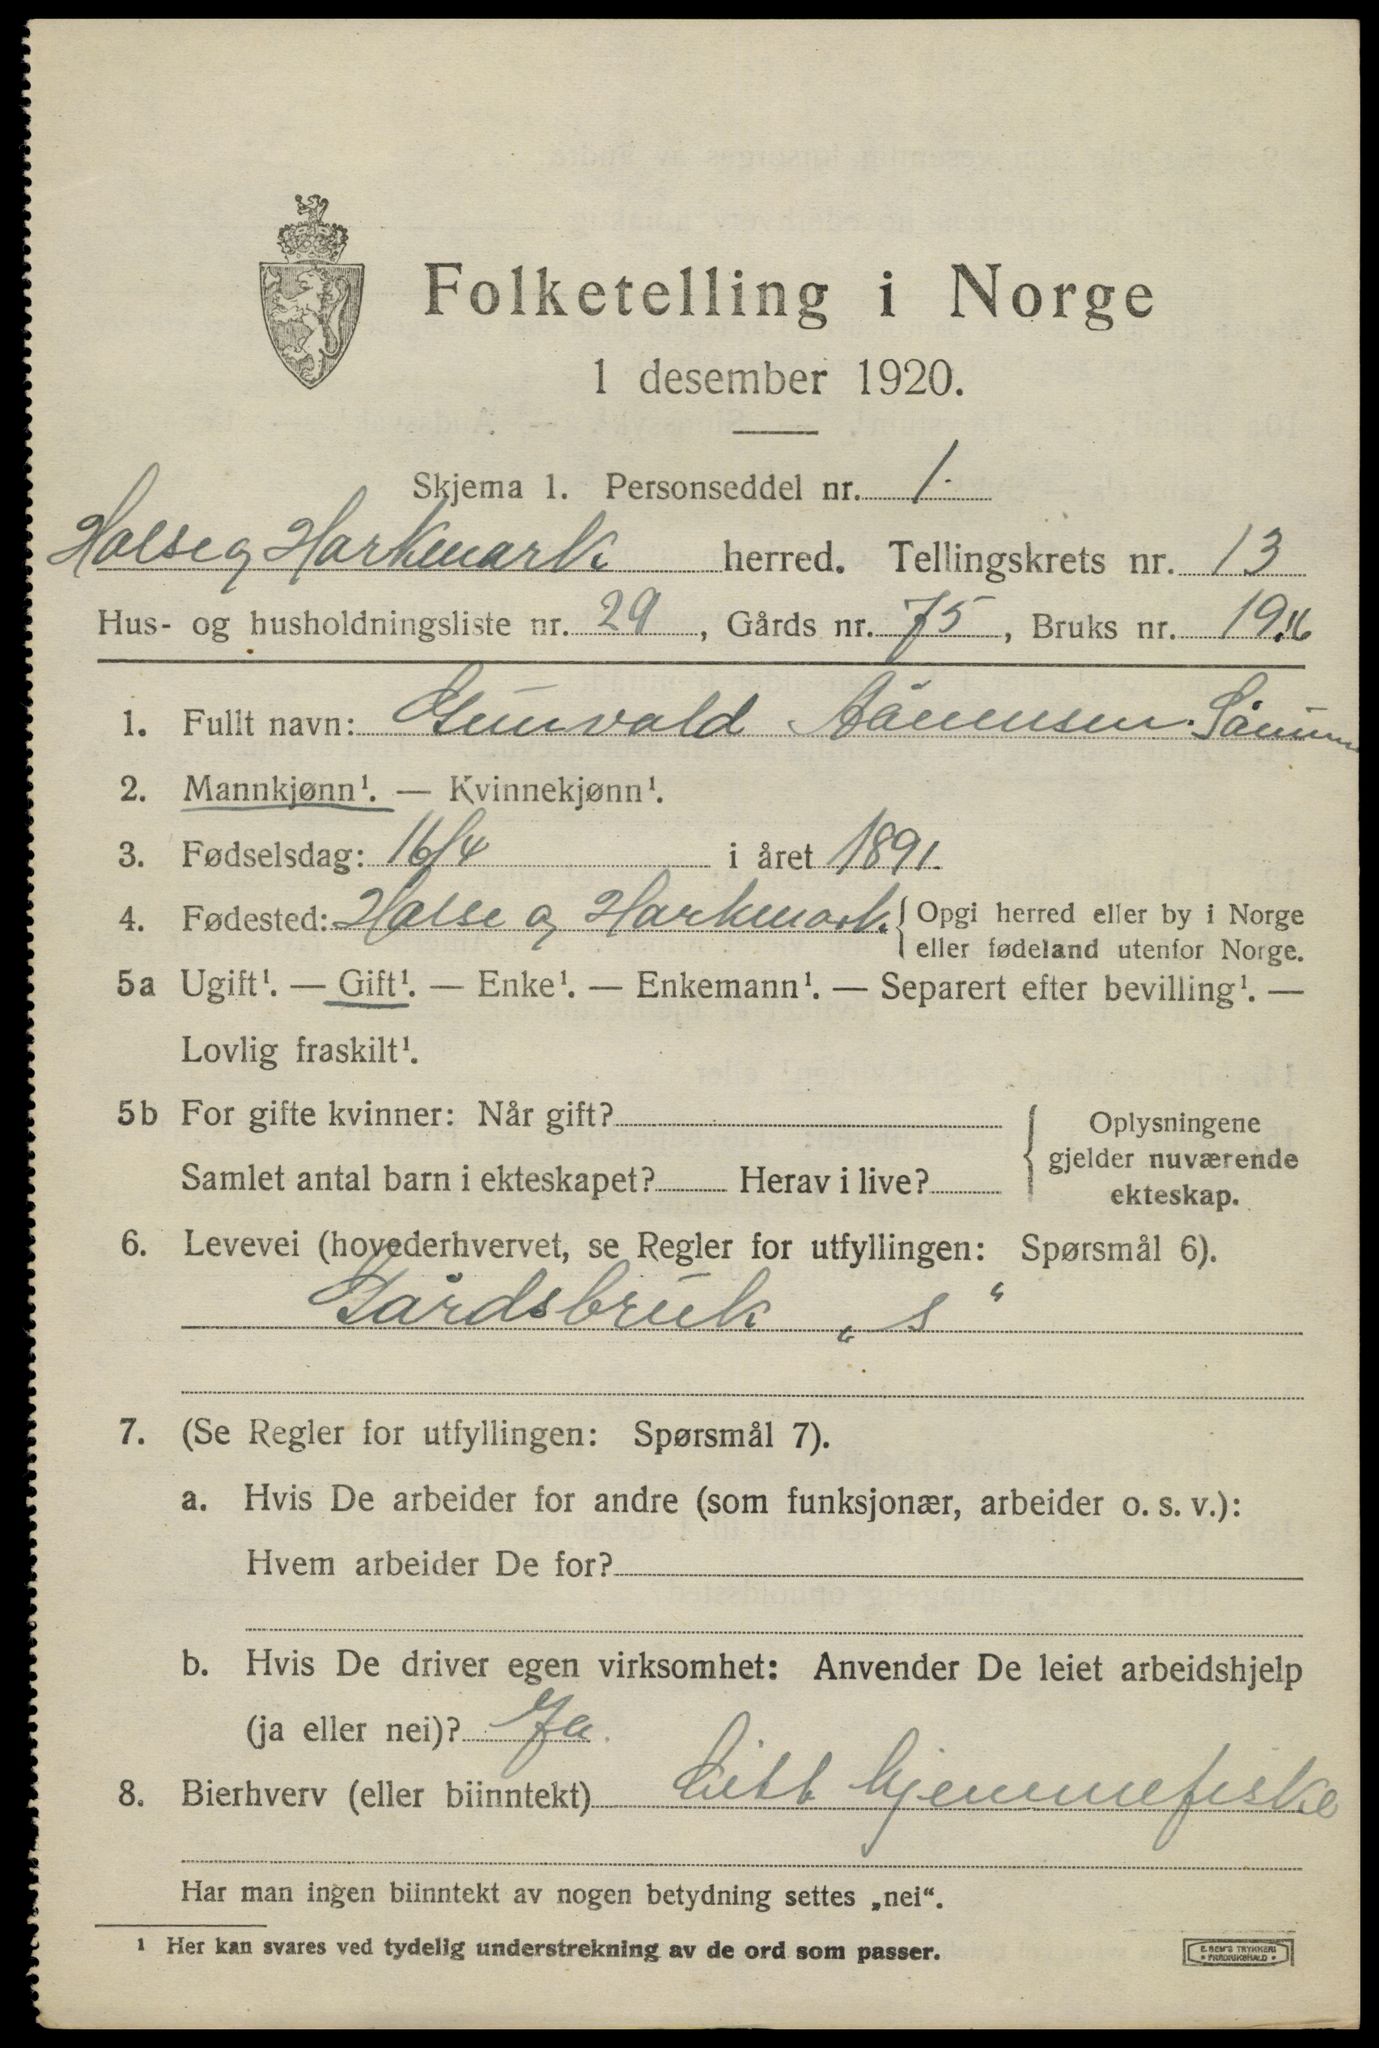 Folketelling i Norge
1 desember 1920.
Skjema 1. Personseddel nr. 1.
Halse og Harkmark herred. Tellingskrets nr. 13
Hus- og husholdningsliste nr. 29, Gårds nr. 75, Bruks nr. 19.16
1. Fullt navn: Gunvald Aanensen
2. Mannkjønn¹. — Kvinnekjønn¹.
3. Fødselsdag: 16/4 i året 1891.
4. Fødested: Halse og Harkmark. { Opgi herred eller by i Norge
eller fødeland utenfor Norge.
5a Ugift¹. — Gift¹. — Enke¹. — Enkemann¹. — Separert efter bevilling¹. —
Lovlig fraskilt¹.
5b For gifte kvinner: Når gift?
Samlet antal barn i ekteskapet? Herav i live?
{ Oplysningene
gjelder nuværende
ekteskap.
6. Levevei (hovederhvervet, se Regler for utfyllingen: Spørsmål 6).
Gårdsbruk „s“
7. (Se Regler for utfyllingen: Spørsmål 7).
a. Hvis De arbeider for andre (som funksjonær, arbeider o. s. v.):
Hvem arbeider De for?
b. Hvis De driver egen virksomhet: Anvender De leiet arbeidshjelp
(ja eller nei)? Ja.
8. Bierhverv (eller biinntekt) Litt hjemmefiske
Har man ingen biinntekt av nogen betydning settes „nei“.
¹ Her kan svares ved tydelig understrekning av de ord som passer.
E. SEM'S TRYKKERI
FREDRIKSHALD